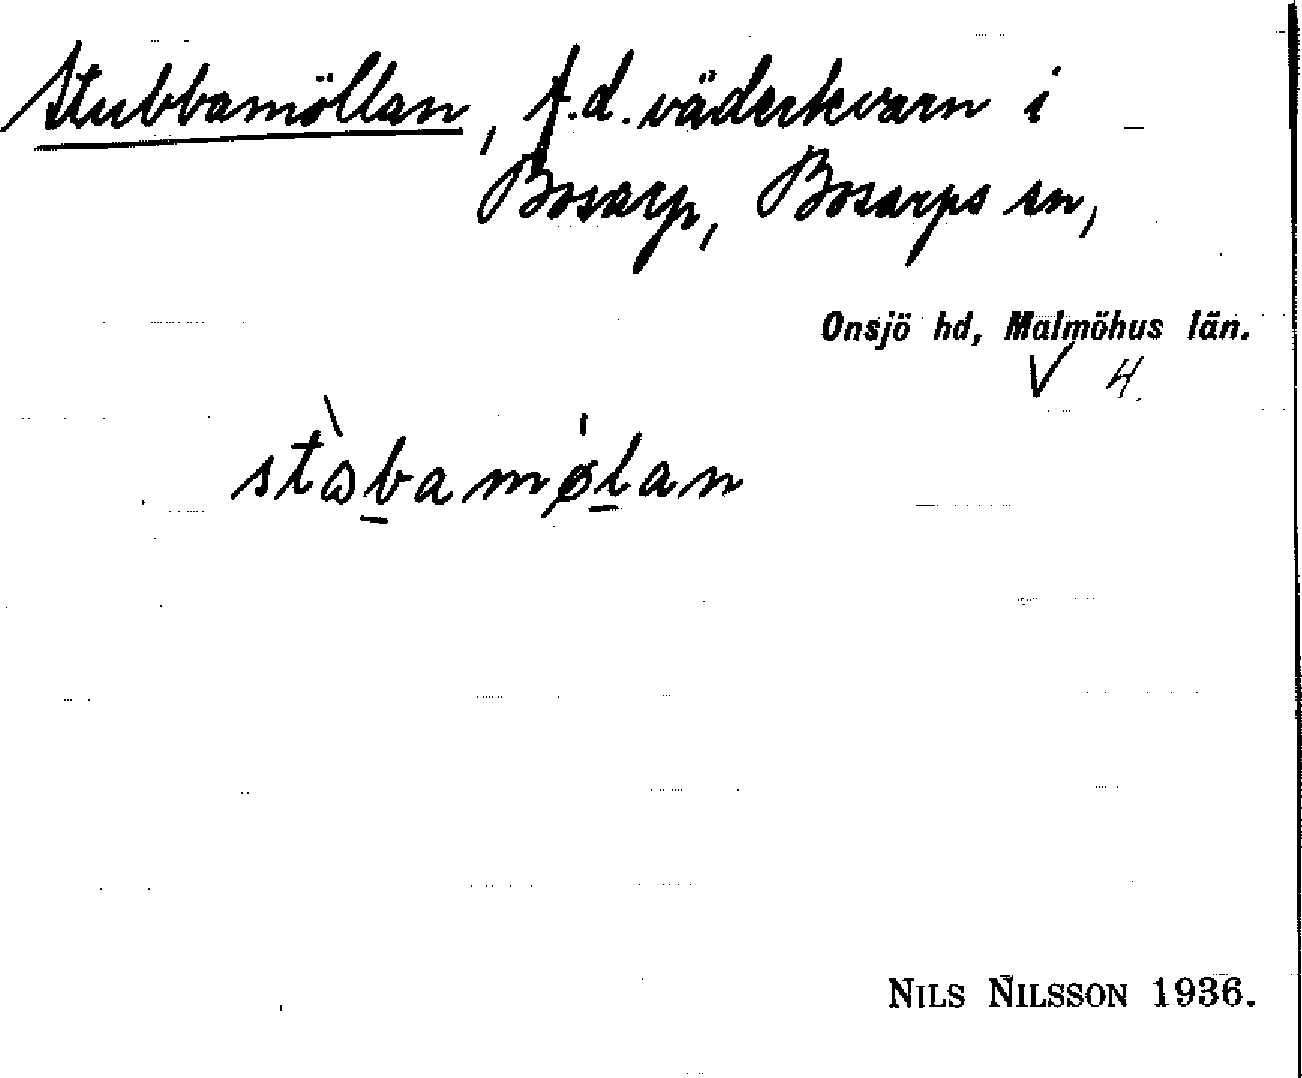 Stubbamöllan, f.d. väderkvarn i
Bosarp, Bosarps sn,
Onsjö hd, Malmöhus län.
V 4.
NILS NILSSON 1936.